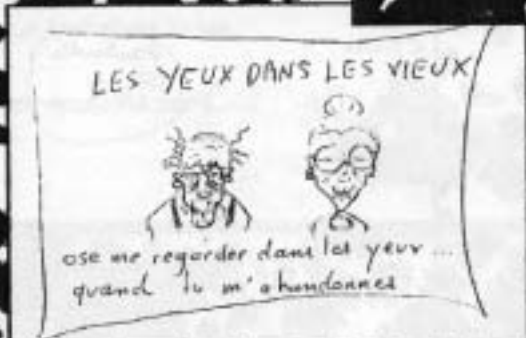 LES YEUX DANS LES VIEUX
ose me regarder dans les yeux...
quand tu m'abandonnes